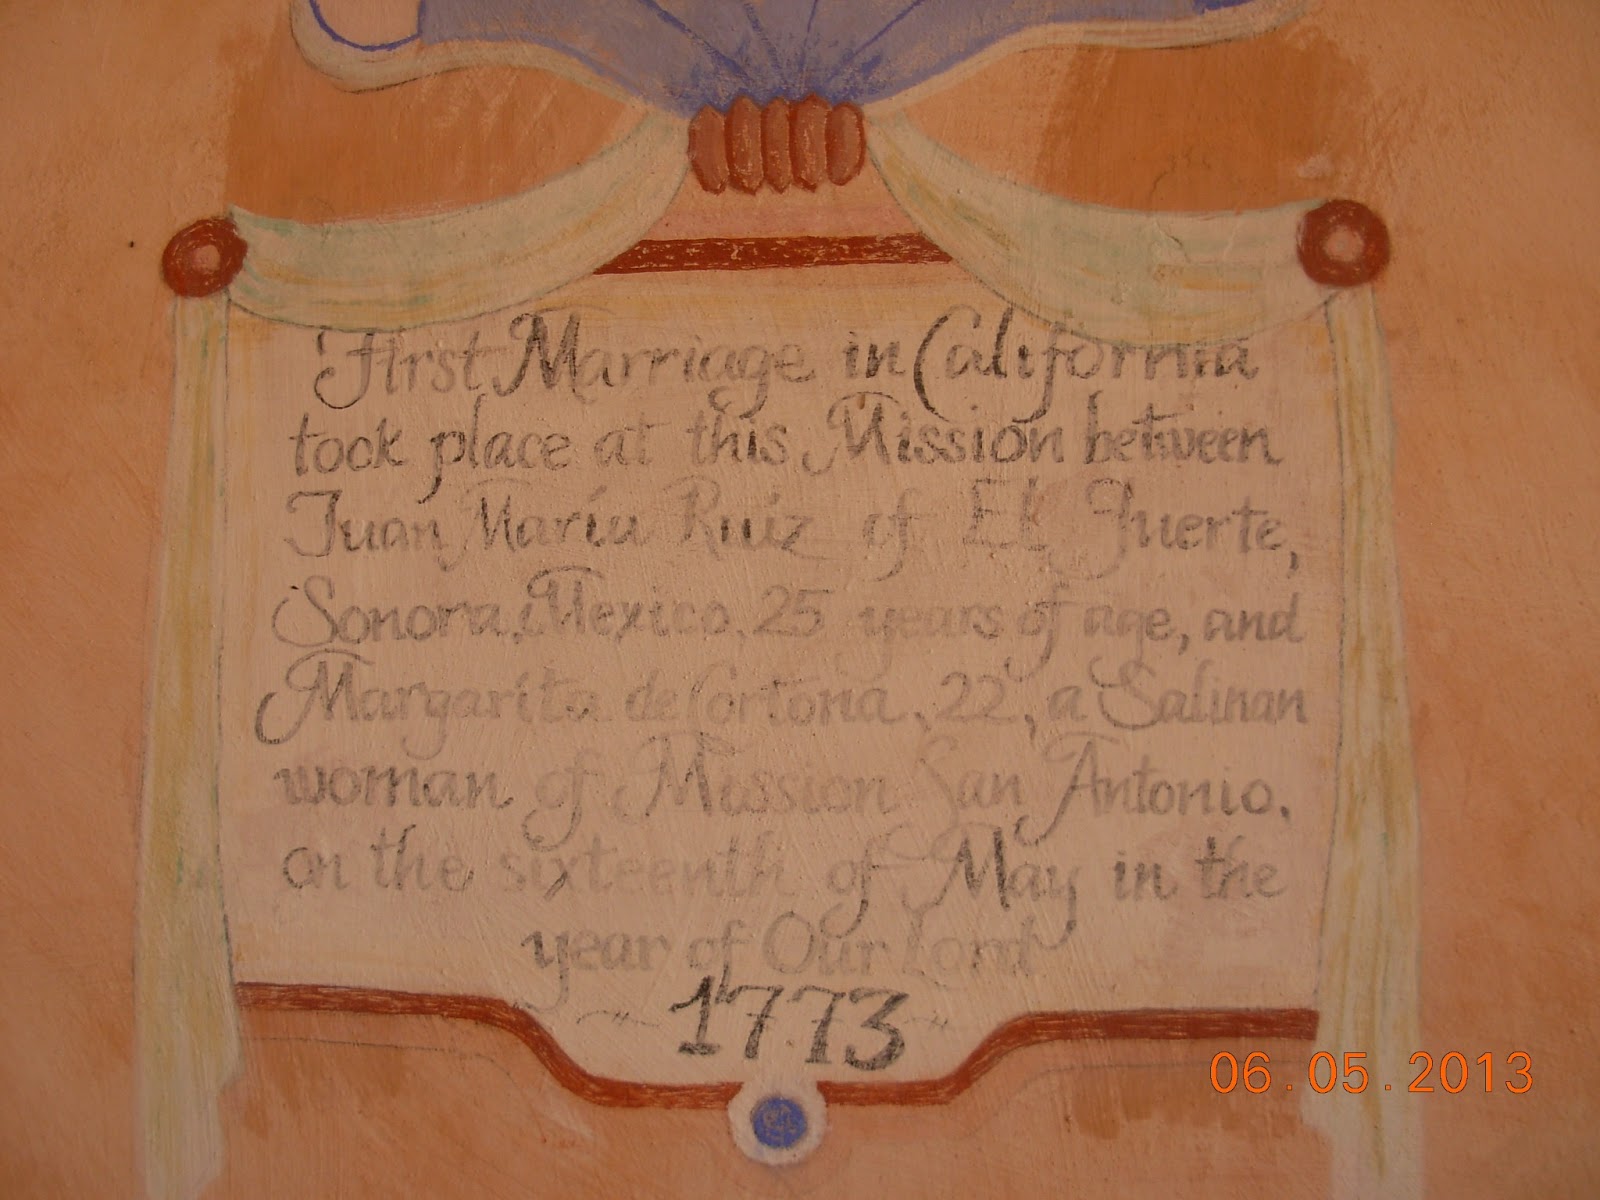 First Marriage in California
took place at this Mission between
Juan María Ruiz of El Fuerte,
Sonora, Mexico, 25 years of age, and
Margarita de Cortona, 22, a Salinan
woman of Mission San Antonio.
on the sixteenth of May in the
year of Our Lord
1773
06.05.2013